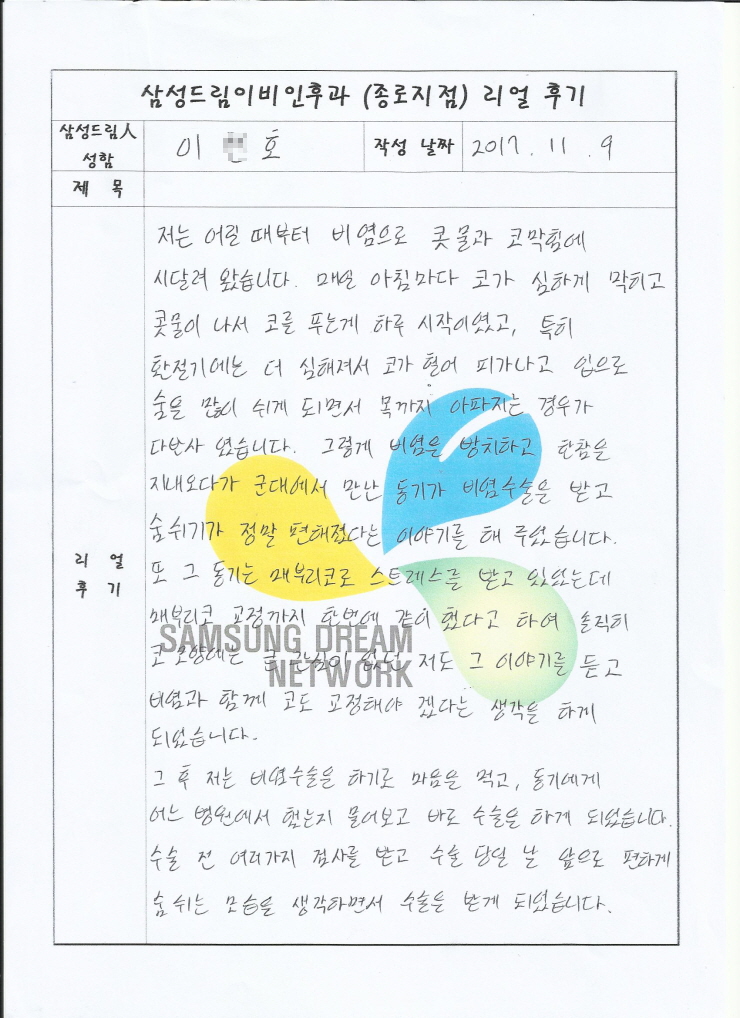 삼성드림이비인후과 (종로지점) 리얼 후기
삼성드림人 성함
이 호
작성 날짜
2017. 11. 9
제 목
리 얼
후 기
저는 어릴 때부터 비염으로 콧물과 코막힘에
시달려 왔습니다. 매일 아침마다 코가 심하게 막히고
콧물이 나서 코를 푸는게 하루 시작이였고, 특히
환절기에는 더 심해져서 코가 헐어 피가나고 입으로
숨을 많이 쉬게 되면서 목까지 아파지는 경우가
다반사 였습니다. 그렇게 비염을 방치하고 한참을
지내오다가 군대에서 만난 동기가 비염수술을 받고
숨쉬기가 정말 편해졌다는 이야기를 해 주었습니다.
또 그 동기는 매부리코로 스트레스를 받고 있었는데
매부리코 교정까지 한번에 같이 했다고 하여 솔직히
코모양에는 큰 관심이 없던 저도 그 이야기를 듣고
비염과 함께 코도 교정해야 겠다는 생각을 하게
되었습니다.
그 후 저는 비염수술을 하기로 마음을 먹고, 동기에게
어느 병원에서 했는지 물어보고 바로 수술을 하게 되었습니다.
수술 전 여러가지 검사를 받고 수술 당일 날 앞으로 편하게
숨 쉬는 모습을 생각하면서 수술을 받게 되었습니다.
SAMSUNG DREAM
NETWORK